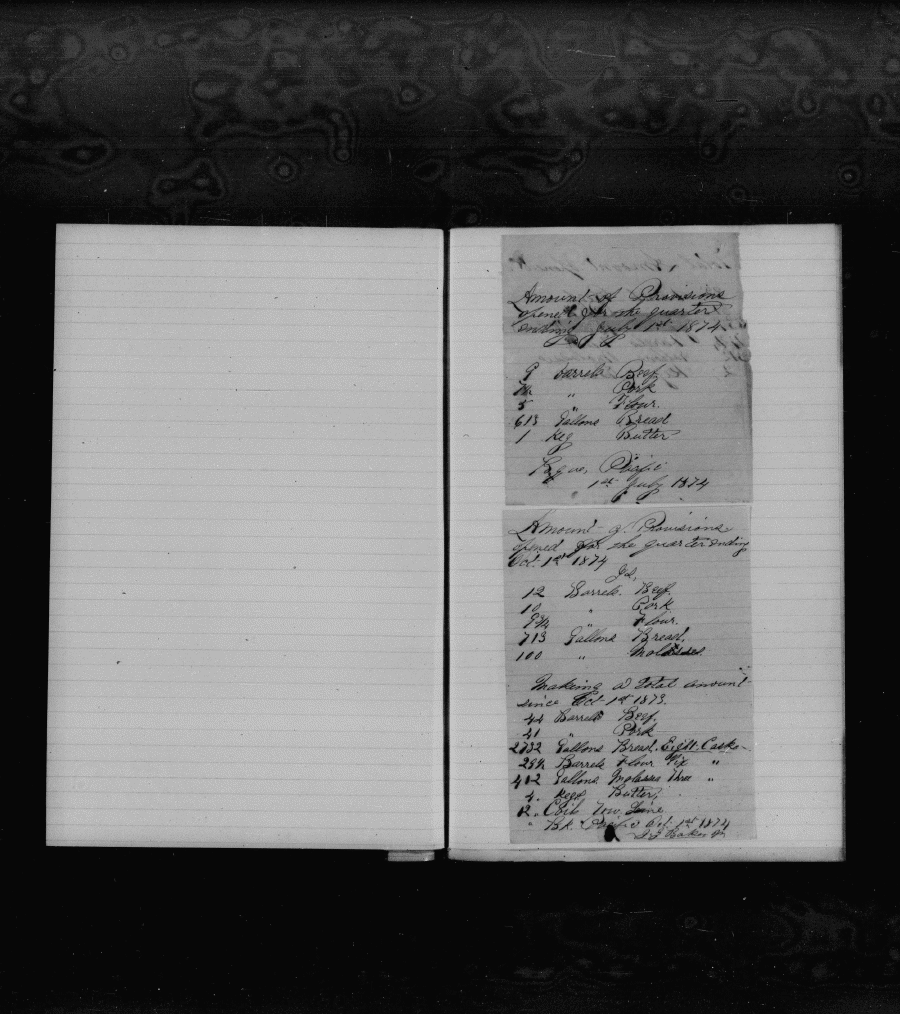 Amount of Provisions
opened for the quarter
ending July 1st 1874
9 barrels Beef
" Pork
5 " Flour.
613 Gallons Bread
1 Keg Butter
Pacific
1st July 1874
Amount of Provisions
opened for the quarter ending
Oct. 1st 1874
12 Barrels Beef.
10 " Pork
9¾ " Flour.
713 Gallons Bread.
100 " Molasses.
Making a total amount
since Oct 1st 1873.
44 Barrels Beef.
41 " Pork
2732 Gallons Bread. Eight Casks
Barrels Flour Six "
412 Gallons Molasses Three "
4. Kegs Butter,
12. Tow Line
Bk Pacific Oct 1st 1874